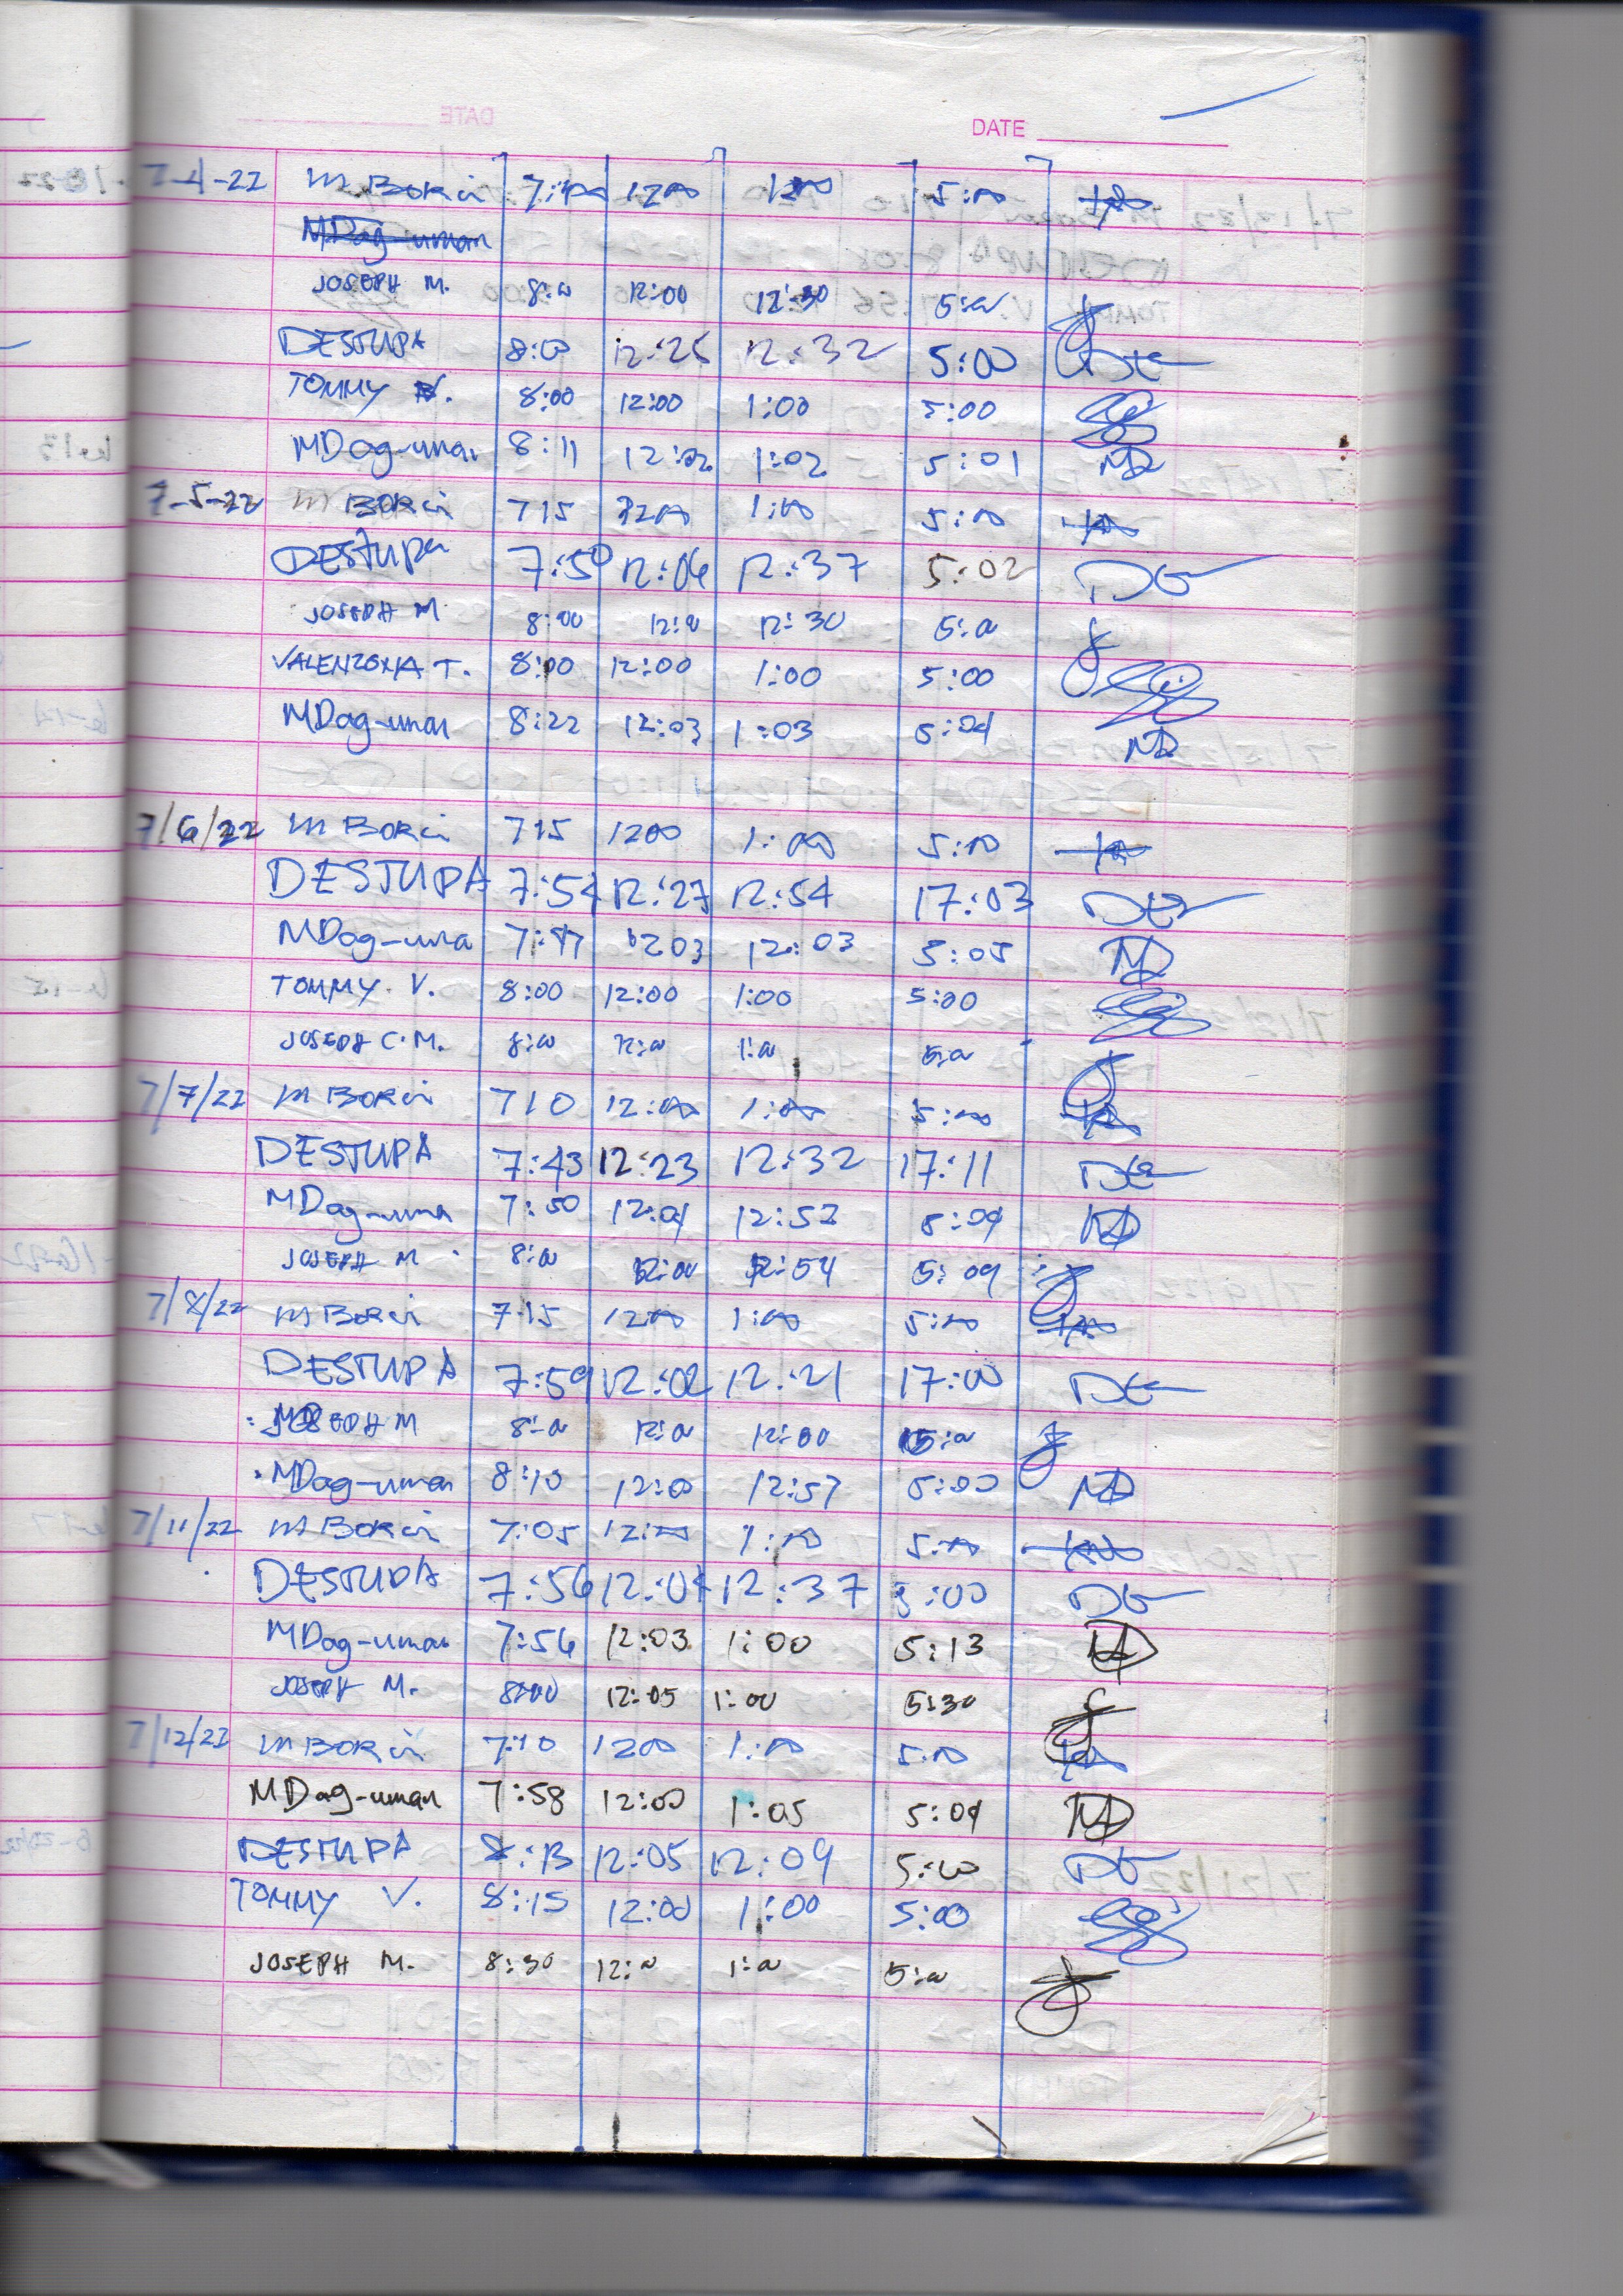 DATE
7-4-22 M Borci 7:40 1200 1:00 5:00
MDag-uman
JOSEPH M. 8:00 12:00 12:30 5:00
DESTUPA 8:00 12:25 12:32 5:00
TOMMY V. 8:00 12:00 1:00 5:00
MDag-uman 8:11 12:02 1:02 5:01
7-5-22 M Borci 715 1200 1:00 5:00
DESTUPA 7:50 12:06 12:37 5:02
JOSEPH M 8:00 12:00 12:30 5:00
VALENZONA T. 8:00 12:00 1:00 5:00
MDag-uman 8:22 12:03 1:03 5:04
7/6/22 M Borci 715 1200 1:00 5:00
DESTUPA 7:54 12:27 12:54 17:03
MDag-uma 7:47 1203 12:03 5:05
TOMMY V. 8:00 12:00 1:00 5:00
JOSEPH C.M. 8:00 12:00 1:00 5:00
7/7/22 M Borci 710 12:00 1:00 5:00
DESTUPA 7:43 12:23 12:32 17:11
MDag-uma 7:50 12:04 12:52 5:04
JOSEPH M 8:00 12:00 12:54 5:04
7/8/22 M Borci 7:15 12:00 1:00 5:00
DESTUPA 7:59 12:02 12:21 17:00
JOSEPH M 8:00 12:00 12:00 5:00
MDag-uman 8:10 12:00 12:57 5:00
7/11/22 M Borci 7:05 12:00 1:00 5:00
DESTUPA 7:56 12:04 12:37 5:00
MDag-uman 7:56 12:03 1:00 5:13
JOSEPH M. 8:00 12:05 1:00 5:30
7/12/22 M Borci 7:10 1200 1:00 5:00
MDag-uman 7:58 12:00 1:05 5:04
DESTUPA 8:13 12:05 12:09 5:00
TOMMY V. 8:15 12:00 1:00 5:00
JOSEPH M. 8:30 12:00 1:00 5:00